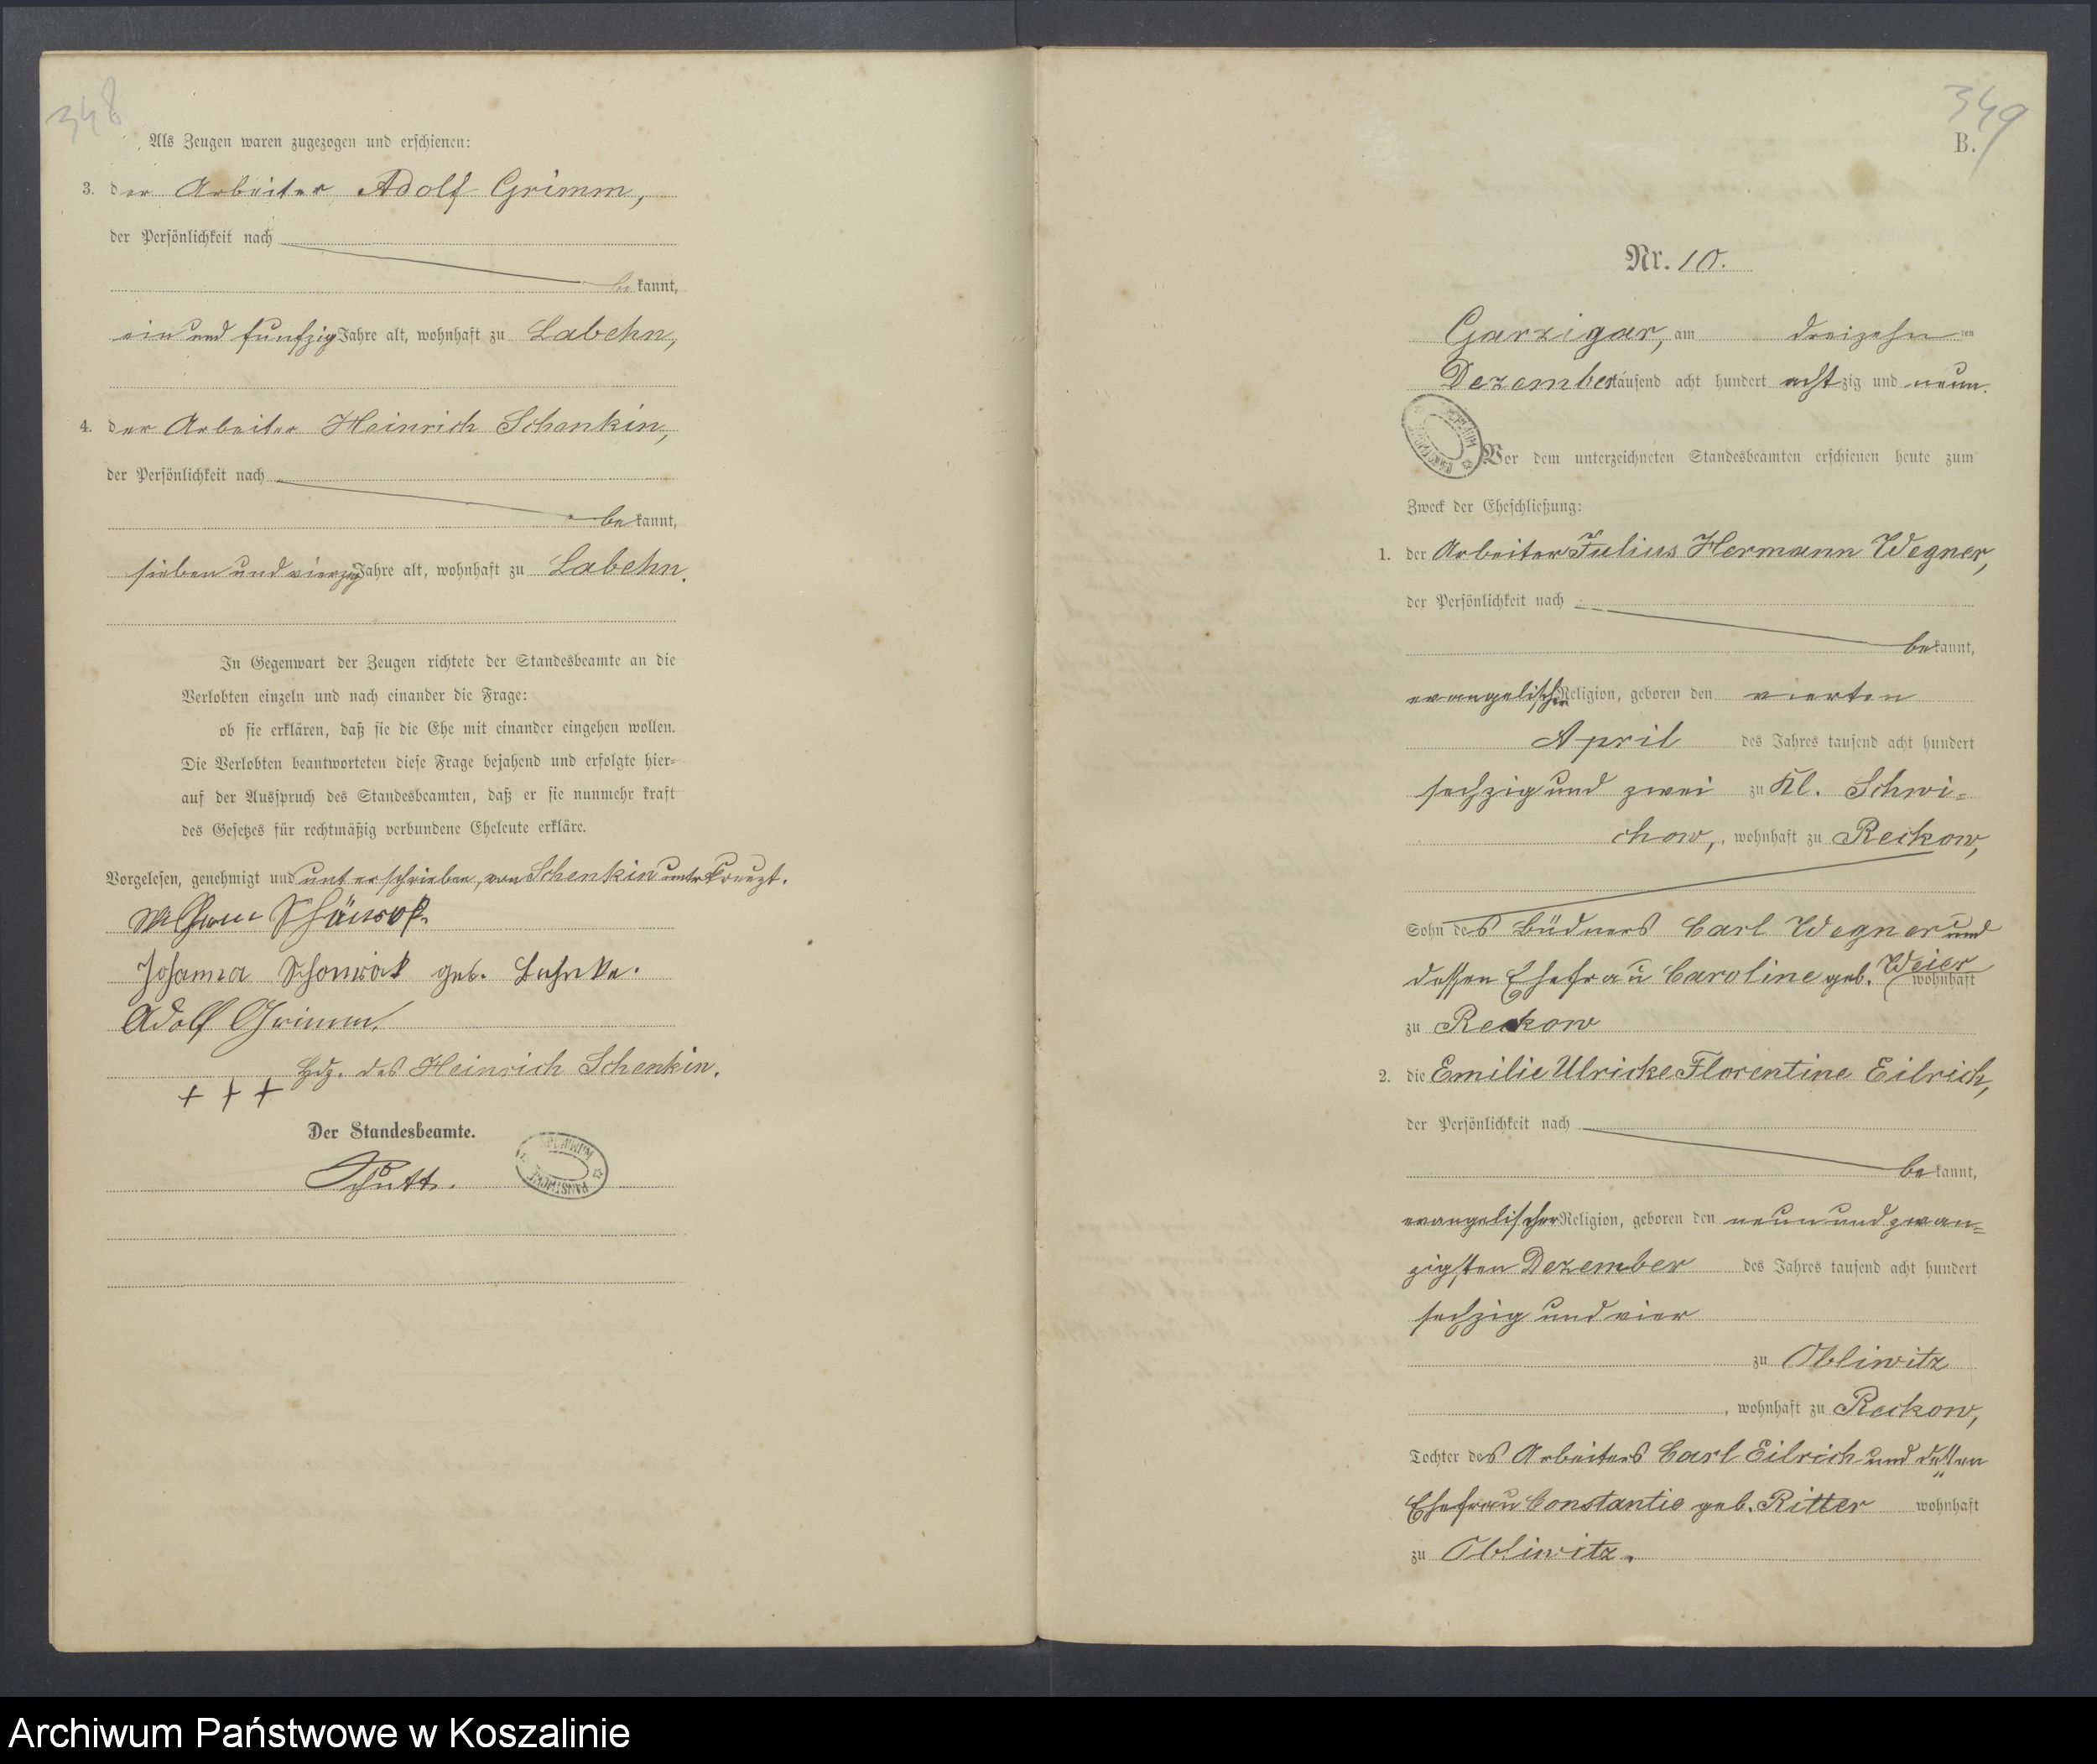 348
Als Zeugen waren zugezogen und erschienen:
3. der Arbeiter Adolf Grimm,
der Persönlichkeit nach
be kannt,
ein und funfzig Jahre alt, wohnhaft zu Labehn,
4. der Arbeiter Heinrich Schenkin,
der Persönlichkeit nach
be kannt,
sieben und vierzig Jahre alt, wohnhaft zu Labehn.
In Gegenwart der Zeugen richtete der Standesbeamte an die
Verlobten einzeln und nach einander die Frage:
ob sie erklären, daß sie die Ehe mit einander eingehen wollen.
Die Verlobten beantworteten diese Frage bejahend und erfolgte hier-
auf der Ausspruch des Standesbeamten, daß er sie nunmehr kraft
des Gesetzes für rechtmäßig verbundene Eheleute erkläre.
Vorgelesen, genehmigt und unterschrieben, von Schenkin unterkreuzt.
Johanna Schonrok geb. Lehnke.
Adolf Grimm.
+ + + Hdz. des Heinrich Schenkin.
Der Standesbeamte.
Schutt.
349
B.
Nr. 10.
Garzigar, am dreizehn ten
Dezember tausend acht hundert achtzig und neun.
Vor dem unterzeichneten Standesbeamten erschienen heute zum
Zweck der Eheschließung:
1. der Arbeiter Julius Hermann Wegner,
der Persönlichkeit nach
be kannt,
evangelischer Religion, geboren den vierten
April des Jahres tausend acht hundert
sechzig und zwei zu Kl. Schwi-
chow, wohnhaft zu Reckow,
Sohn des Büdners Carl Wegner und
dessen Ehefrau Caroline geb. Weier wohnhaft
zu Reckow
2. die Emilie Ulricke Florentine Eilrich,
der Persönlichkeit nach
be kannt,
evangelischer Religion, geboren den neun und zwan-
zigsten Dezember des Jahres tausend acht hundert
sechzig und vier
zu Obliwitz
, wohnhaft zu Reckow,
Tochter des Arbeiters Carl Eilrich und dessen
Ehefrau Constantie geb. Ritter wohnhaft
zu Obliwitz.
Archiwum Państwowe w Koszalinie